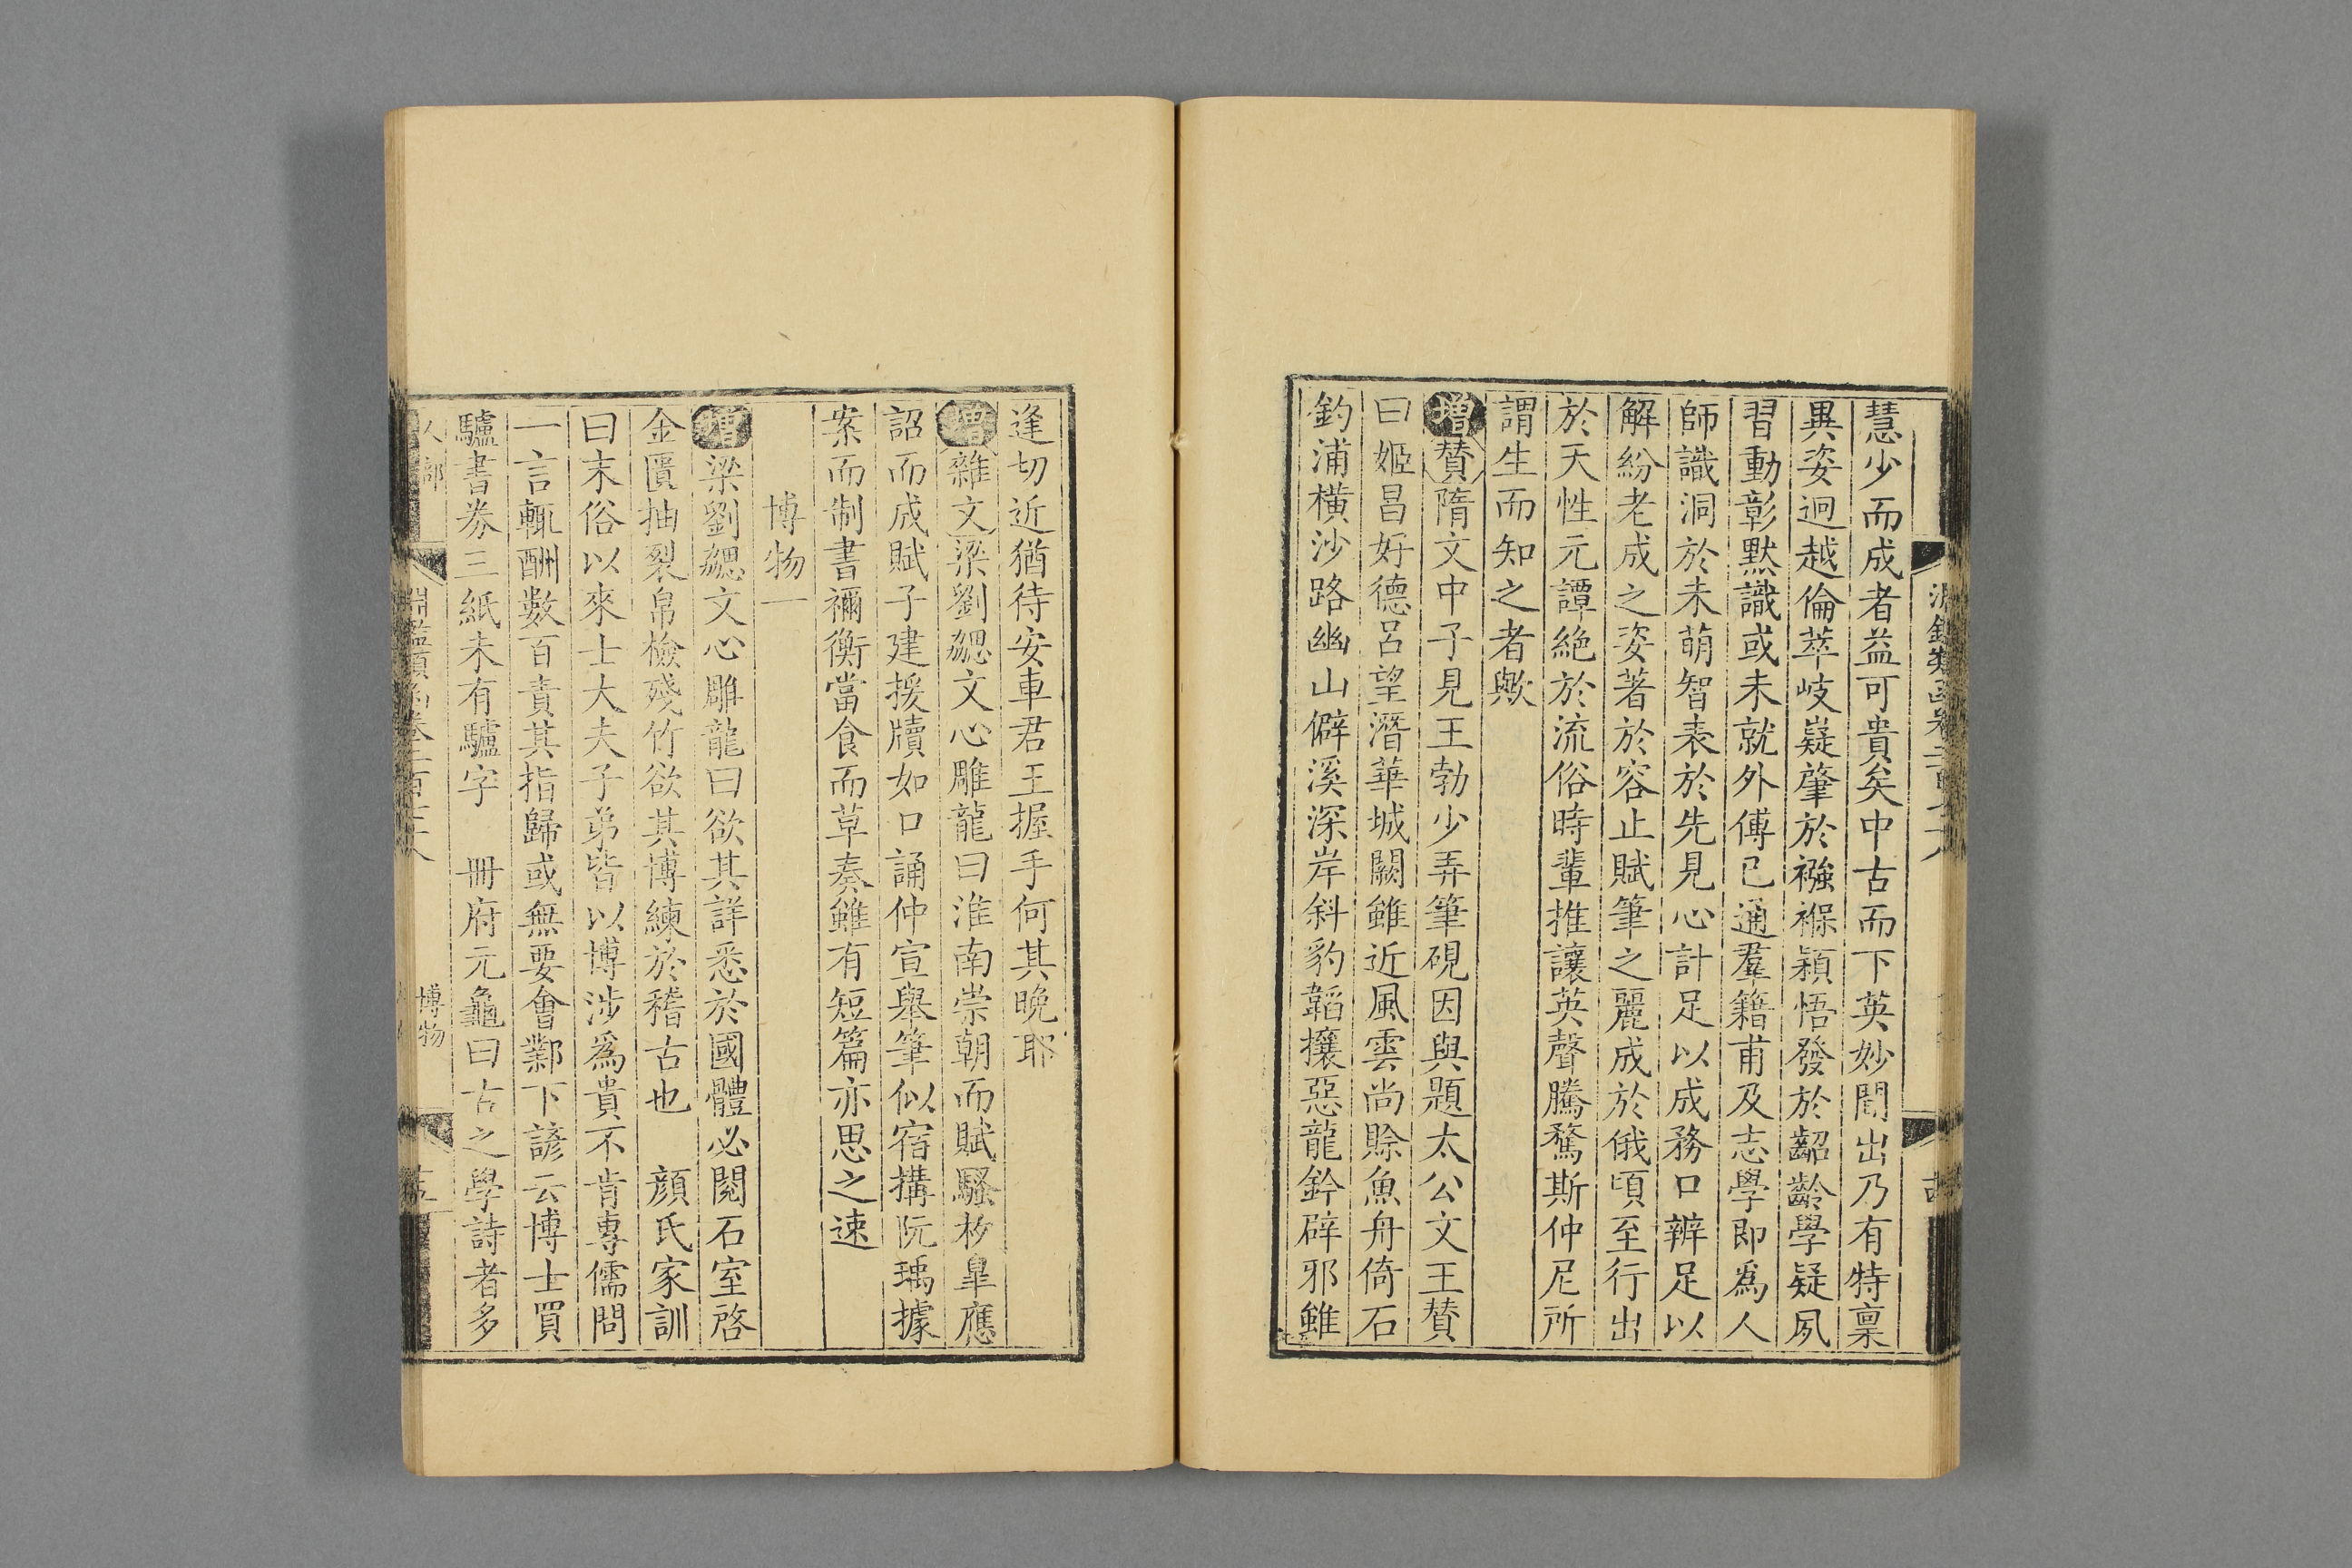 慧少而成者益可貴矣中古而下英妙間出乃有特稟
異姿迥越倫萃岐嶷肇於襁褓穎悟發於齠齡學疑夙
習動彰默識或未就外傅已通羣籍甫及志學即爲人
師識洞於未萌智表於先見心計足以成務口辨足以
解紛老成之姿著於容止賦筆之麗成於俄頃至行出
於天性元譚絶於流俗時輩推讓英聲騰騖斯仲尼所
謂生而知之者歟
增賛隋文中子見王勃少弄筆硯因與題太公文王賛
曰姬昌好德呂望潛華城闕雖近風雲尚賒魚舟倚石
釣浦橫沙路幽山僻溪深岸斜豹韜攘惡龍鈐辟邪雖
逢切近猶待安車君王握手何其晚耶
增雜文梁劉勰文心雕龍曰淮南崇朝而賦騷枚臯應
詔而成賦子建援牘如口誦仲宣舉筆似宿搆阮瑀據
案而制書禰衡當食而草奏雖有短篇亦思之速
博物一
增梁劉勰文心雕龍曰欲其詳悉於國體必閱石室啓
金匱抽裂帛檢殘竹欲其博練於稽古也 顏氏家訓
曰末俗以來士大夫子弟皆以博涉爲貴不肯專儒問
一言輒酬數百責其指歸或無要會鄴下諺云博士買
驢書劵三紙未有驢字 冊府元龜曰古之學詩者多
人部
博物